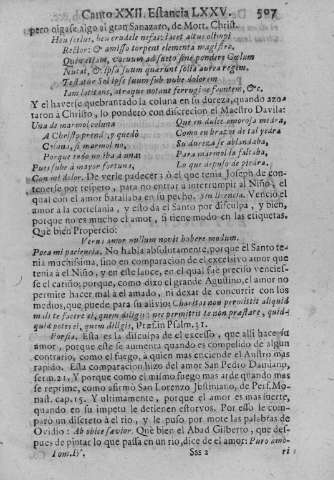 Canto XXII. Estancia LXXV. 507
pero oigase algo al gran Sanazaro, de Mort. Christ.
Heu scelus, heu crudele nefas: iacet altus olympi
Rector: & amisso torpent elementa magistro.
Quin etiam, vacuum adsueto sine pondere Cælum
Nutat, & ipsa suum quærunt solia aurea regem.
Testatur Sol ipse suum sub nube dolorem
Iam latitans, atraque notant ferrugine frontem, &c.
Y el haverse quebrantado la coluna en su dureza, quando azo-
taron à Christo, lo ponderò con discrecion el Maestro Davila:
Una de marmol coluna
A Christo prende; y quedò
si marmol no,
Porque eso no iba à mas
Pues sube à mayor fortuna,
Con mi dolor.
Que en dulce amorosa piedra,
Como en brazos de tal yedra
Su dureza se ablandaba,
Para marmol la faltaba,
Lo que depuso de piedra.
De verle padecer: ò el que tenia Joseph de con-
tenerse por respeto, para no entrar à interrumpir al Niño, el
qual con el amor batallaba en su pecho. sin licencia. Venciò el
amor à la cortesania, y esto dà el Santo por disculpa, y bien,
porque no es mucho el amor, si tiene modo en las etiquetas.
Que bien Propercio:
Verus amor nullum novit habere modum.
Para mi paciencia. No habla absolutamente, porque el Santo te-
nia muchissima, sino en comparacion de el excessivo amor que
tenia à el Niño, y en este lance, en el qual fue preciso vencies-
se el cariño; porque, como dixo el grande Augustino, el amor no
permite hacer mal à el amado, ni dexar de concurrir con los
medios, que puede para su alivio: Charitas non permittit aliquid
mali te facere ei, quem diligis: nec permittit te non præstare, quid-
quid potes ei, quem diligis, Præf. in Psalm. 31.
Porfia. Esta es la disculpa de el excesso, que alli hace su
amor, porque este se aumenta quando es compelido de algun
contrario, como el fuego, à quien mas enciende el Austro mas
rapido. Esta comparacion hizo del amor San Pedro Damiano,
serm. 21. Y porque como el mismo fuego mas arde quando mas
se reprime, como afirmò San Lorenzo Justiniano, de Perf. Mo-
nast. cap. 15. Y ultimamente, porque el amor es mas fuerte,
quando en su impetu le detienen estorvos. Por esso le com-
parò un discreto à el rio, y le puso por mote las palabras de
Ovidio: Ab obice sævior. Que bien el Abad Gilberto, que des-
pues de pintar lo que passa en un rio, dice de el amor: Puro amo-
Tom. IV. Sss 2 ri: